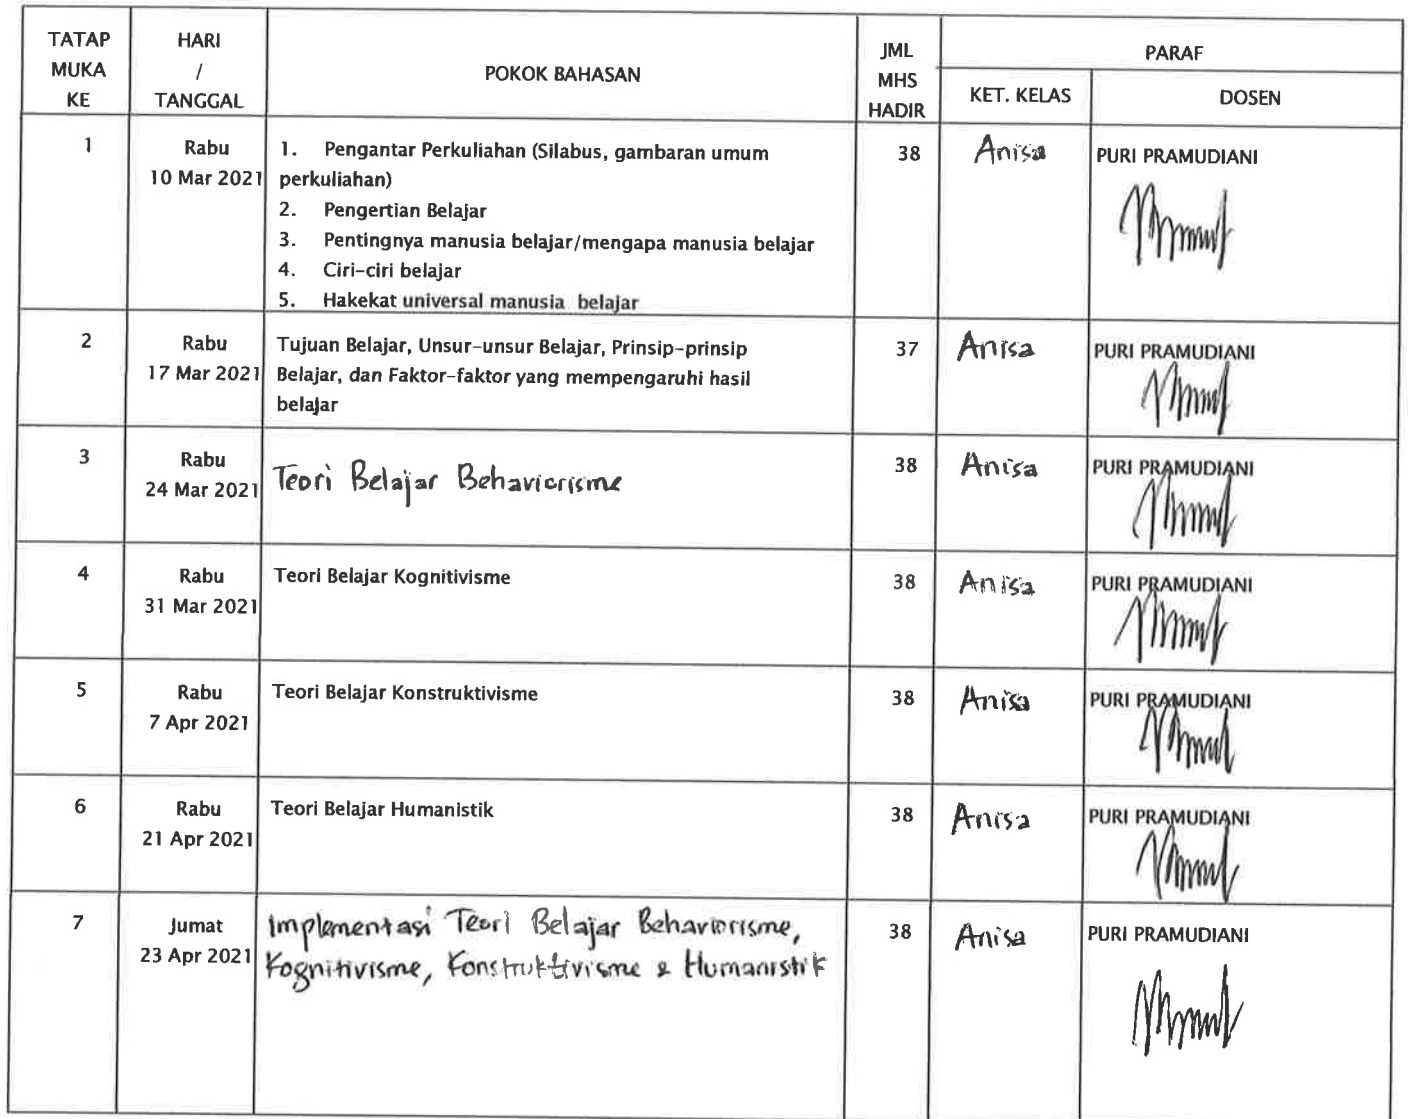 TATAP MUKA KE
HARI / TANGGAL
POKOK BAHASAN
JML MHS HADIR
PARAF
KET. KELAS
DOSEN
1
Rabu
10 Mar 2021
1. Pengantar Perkuliahan (Silabus, gambaran umum
perkuliahan)
2. Pengertian Belajar
3. Pentingnya manusia belajar/mengapa manusia belajar
4. Ciri-ciri belajar
5. Hakekat universal manusia belajar
38
Anisa
PURI PRAMUDIANI
2
Rabu
17 Mar 2021
Tujuan Belajar, Unsur-unsur Belajar, Prinsip-prinsip
Belajar, dan Faktor-faktor yang mempengaruhi hasil
belajar
37
Anisa
PURI PRAMUDIANI
3
Rabu
24 Mar 2021
Teori Belajar Behaviorisme
38
Anisa
PURI PRAMUDIANI
4
Rabu
31 Mar 2021
Teori Belajar Kognitivisme
38
Anisa
PURI PRAMUDIANI
5
Rabu
7 Apr 2021
Teori Belajar Konstruktivisme
38
Anisa
PURI PRAMUDIANI
6
Rabu
21 Apr 2021
Teori Belajar Humanistik
38
Anisa
PURI PRAMUDIANI
7
Jumat
23 Apr 2021
Implementasi Teori Belajar Behaviorisme,
Kognitivisme, Konstruktivisme & Humanistik
38
Anisa
PURI PRAMUDIANI